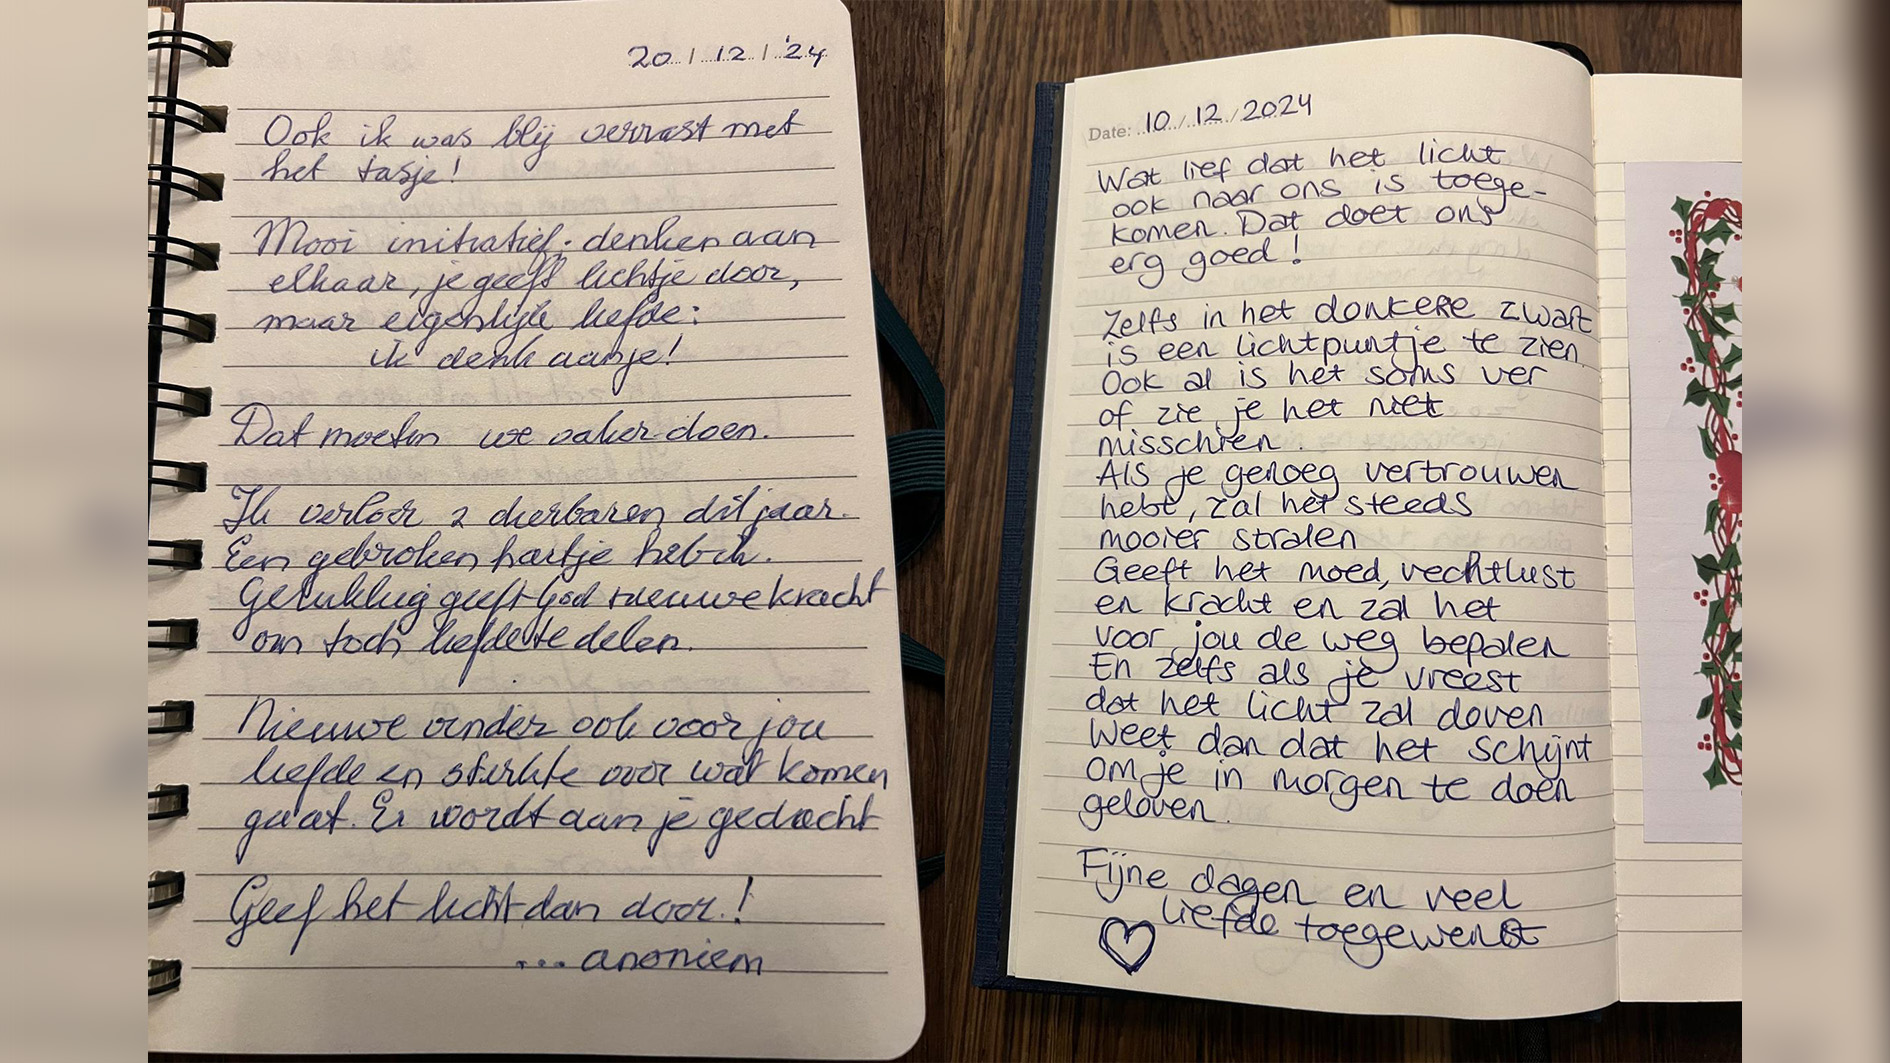 20 / 12 / '24
Ook ik was blij verrast met
het tasje!
Mooi initiatief. denken aan
elkaar, je geeft lichtje door,
maar eigenlijk liefde:
ik denk aan je!
Dat moeten we vaker doen.
Ik verloor 2 dierbaren dit jaar.
Een gebroken hartje heb ik.
Gelukkig geeft God nieuwe kracht
om toch liefde te delen.
Nieuwe vinder ook voor jou
liefde en sterkte voor wat komen
gaat. Er wordt aan je gedacht
Geef het licht dan door!
... anoniem
Date: 10 / 12 / 2024
Wat lief dat het licht
ook naar ons is toege-
komen. Dat doet ons
erg goed!
Zelfs in het donkere zwart
is een lichtpuntje te zien
Ook al is het soms ver
of zie je het niet
misschien.
Als je genoeg vertrouwen
hebt, zal het steeds
mooier stralen
Geeft het moed, vechtlust
en kracht en zal het
voor jou de weg bepalen
En zelfs als je vreest
dat het licht zal doven
Weet dan dat het schijnt
om je in morgen te doen
geloven.
Fijne dagen en veel
liefde toegewenst